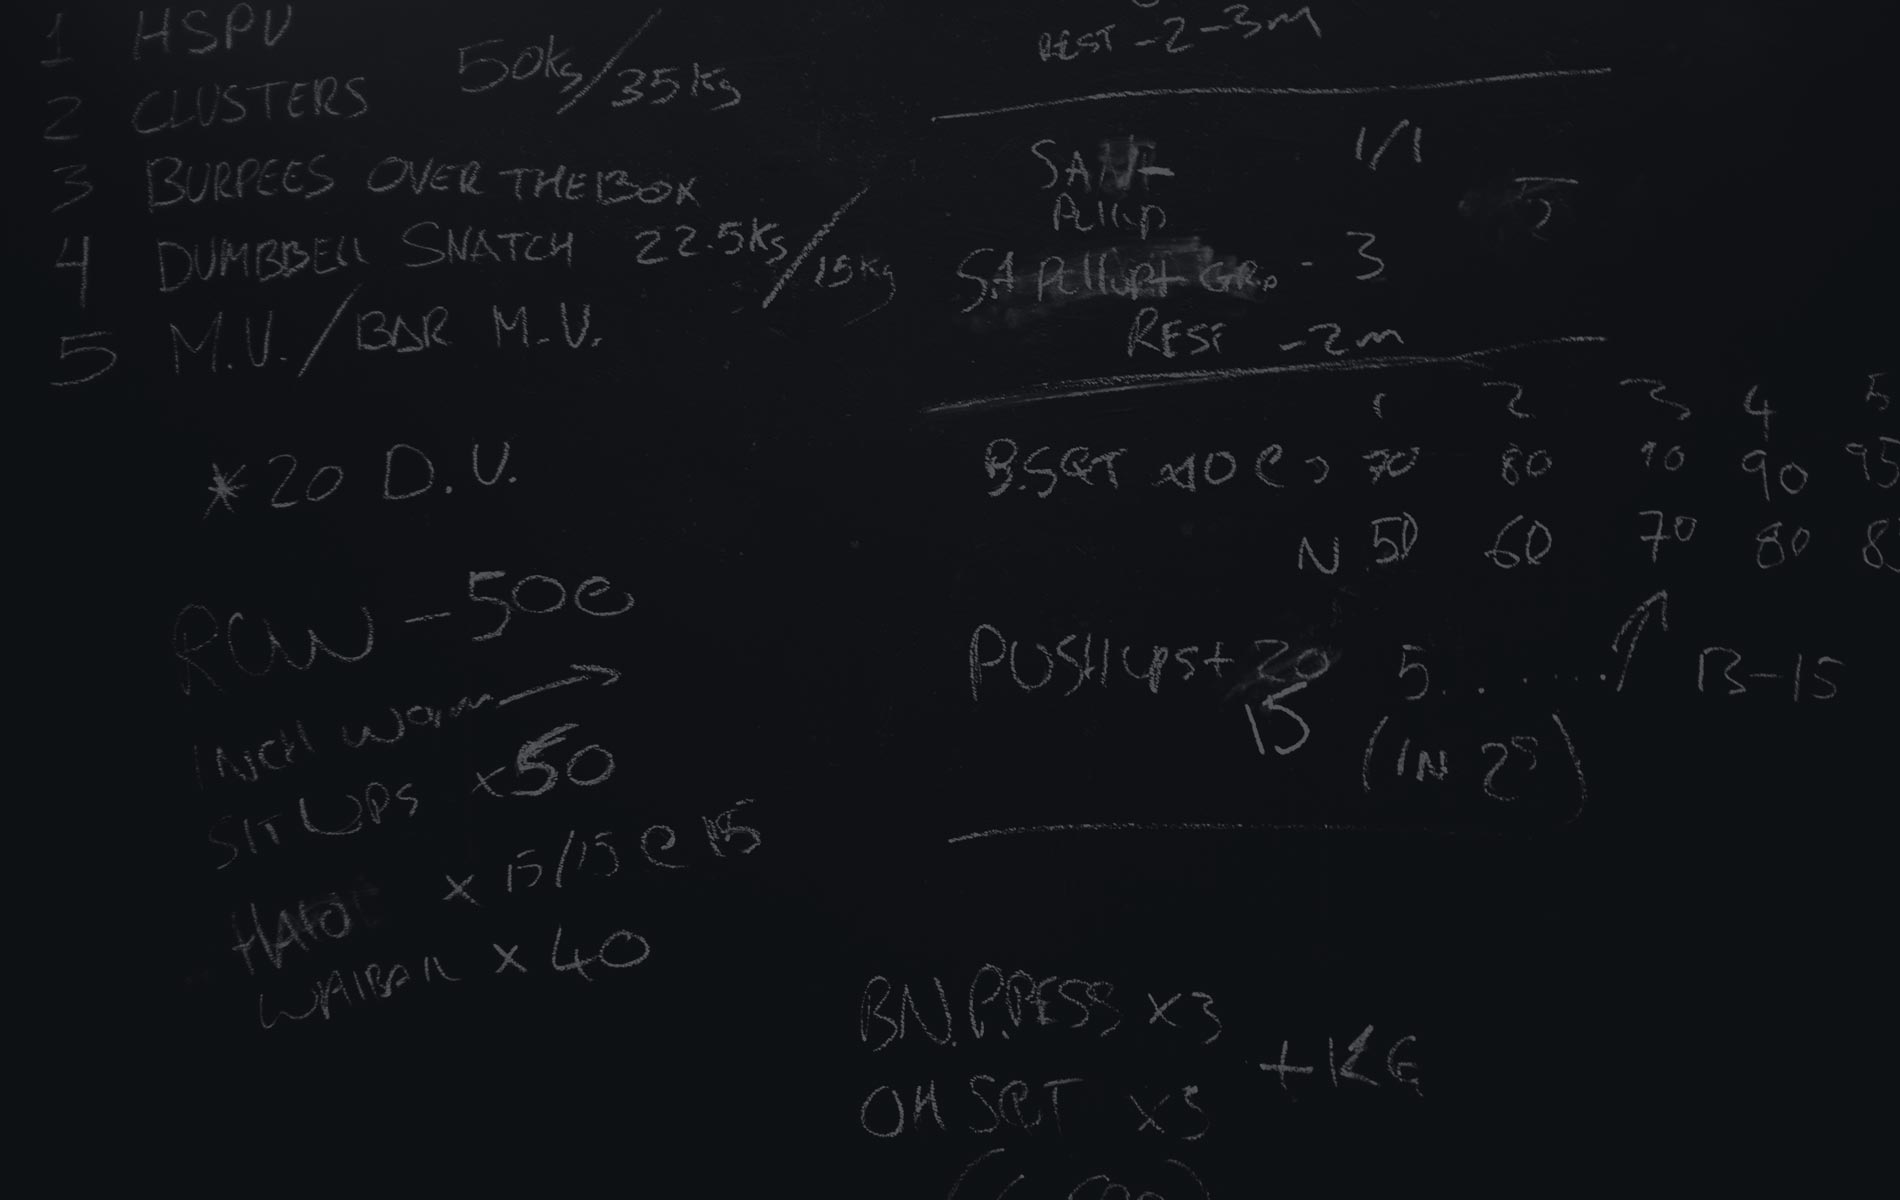 1 HSPU
2 CLUSTERS 50kg/35kg
3 BURPEES OVER THE BOX
4 DUMBBELL SNATCH 22.5KG/15Kg
5 M.U./BAR M.U.
*20 D.U.
ROW - 500
INCH WORM
SIT UPS x50
x 15/15 @ 15
x 40
REST - 2-3m
1/1
Pullup
SA Pullup - 3
REST - 2m
1 2 3 4 5
B.SQT x10 @ 70 80 90 95
N 50 60 70 80
PUSHUPS + 20 5........ B-15
15 (IN 2S)
BN.P.PRESS x3
OH SQT x3
+KG